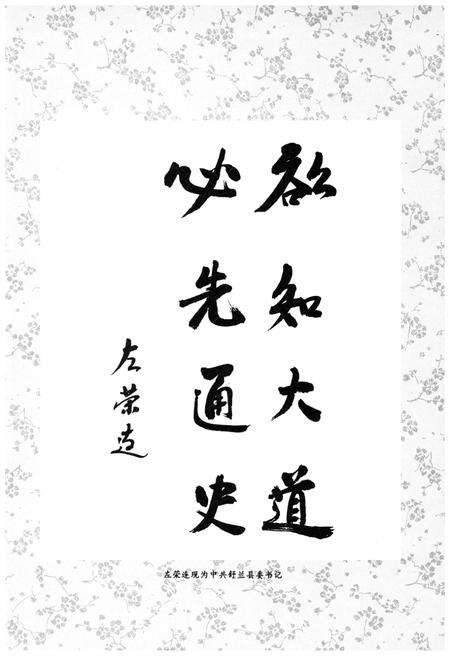 欲知大道
必先通史
左荣连
左荣连现为中共舒兰县委书记